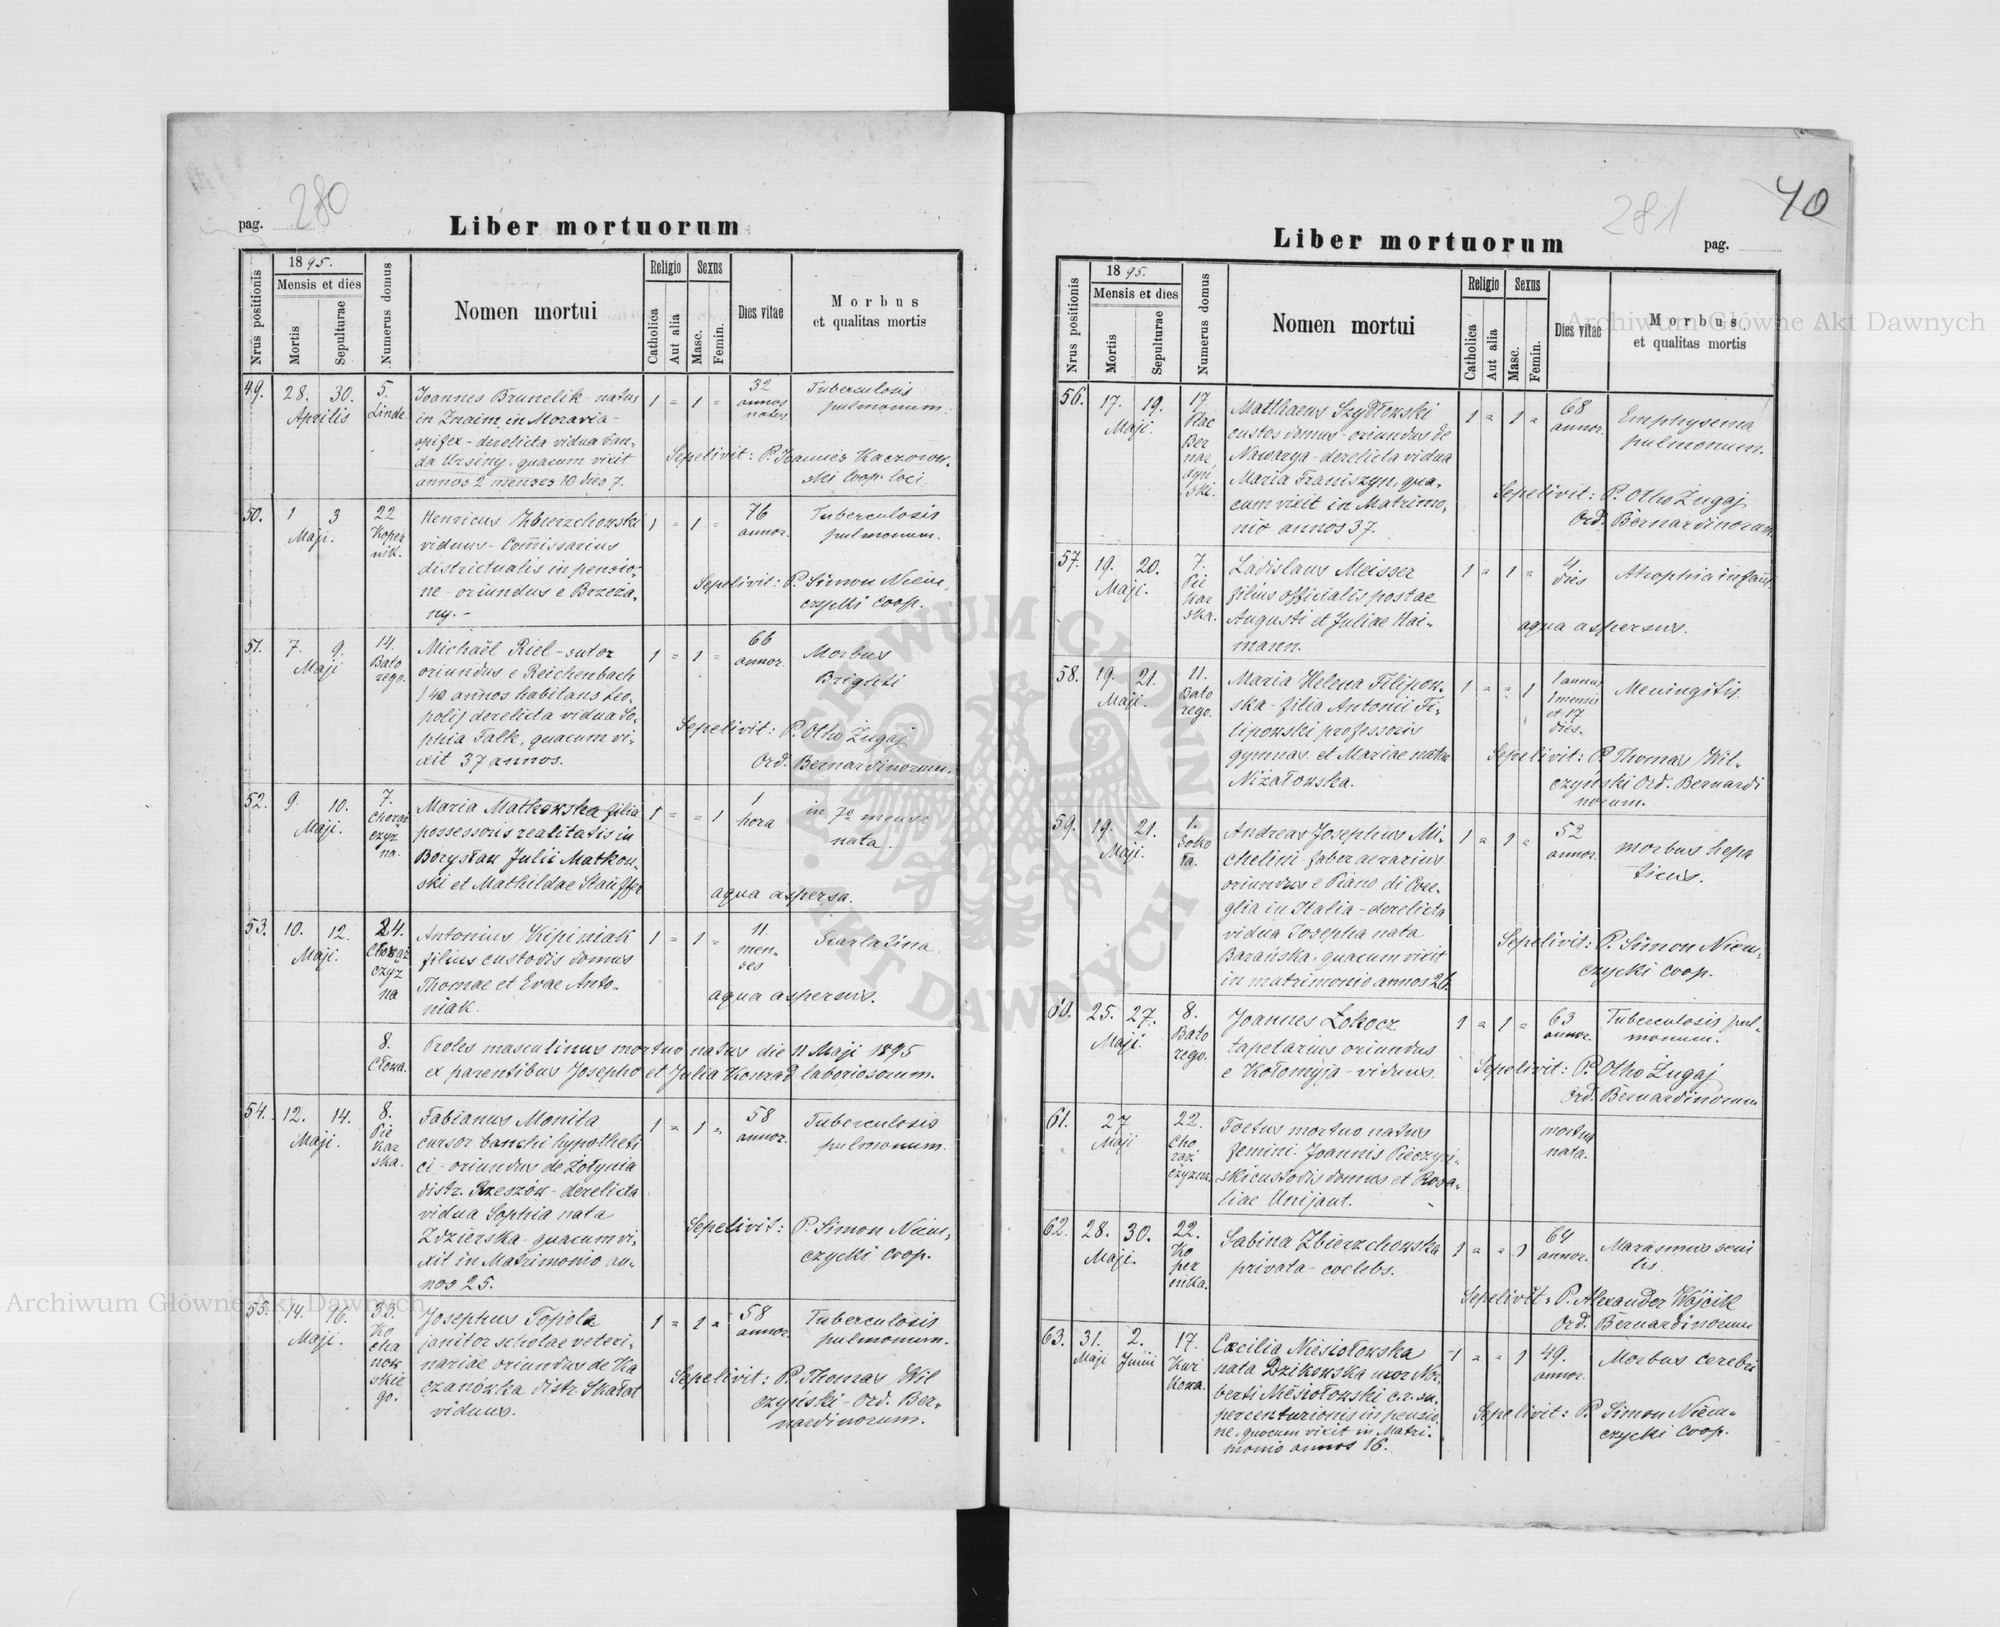 280
pag.
Liber mortuorum
Nrus positionis
1895.
Mensis et dies
Mortis
Sepulturae
Numerus domus
Nomen mortui
Religio
Catholica
Aut alia
Sexus
Masc.
Femin.
Dies vitae
Morbus
et qualitas mortis
49. 28. 30. Aprilis
5. Linde
Joannes Brunelik natus
in Znaim in Moravia -
opifex - derelicta vidua Van-
da Ursiny, quacum vixit
annos 2 menses 10 dies 7.
1 " 1 "
32
annos
natus
Tuberculosis
pulmonum.
Sepelivit: P. Joannes Kaczorow-
ski Coop. loci.
50. 1 3 Maji.
22
Koper
nik.
Henricus Zbierzchowski
viduus - Commissarius
districtualis in pensio-
ne - oriundus e Brzeża-
ny. -
1 " 1 "
76
annor.
Tuberculosis
pulmonum.
Sepelivit: P. Simon Niem-
czycki coop.
51. 7. 9. Maji
14.
Bato
rego.
Michaël Riel - sutor
oriundus e Reichenbach
(40 annos habitans Leo-
poli) derelicta vidua So-
phia Falk, quacum vi-
xit 37 annos.
1 " 1 "
66
annor.
Morbus
Brighti
Sepelivit: P. Otho Żugaj
Ord. Bernardinorum.
52. 9. 10. Maji.
7.
Chorąż
czyz
na.
Maria Matkowska filia
possessoris realitatis in
Borysław Julii Matkow-
ski et Mathildae Stauffer
1 " " 1
1
hora
in 7º mense
nata.
aqua aspersa.
53. 10. 12. Maji.
24.
Chorąż
czyz
na
Antonius Kipiniak
filius custodis domus
Thomae et Evae Anto-
niak.
1 " 1 "
11.
men-
ses
Scarlatina
aqua aspersus.
8.
Cłowa.
Proles masculinus mortuo natus die 11 Maji 1895
ex parentibus Josepho et Julia Konrad laboriosorum.
54. 12. 14. Maji.
8.
Pie
kar
ska.
Fabianus Monita
cursor banchi hypotheti
ci - oriundus de Żołynia
distr. Rzeszów - derelicta
vidua Sophia nata
Zdzierska - quacum vi-
xit in Matrimonio an-
nos 25.
1 " 1 "
58
annor.
Tuberculosis
pulmonum.
Sepelivit: P. Simon Niem-
czycki coop.
55. 14. 16. Maji.
33.
Ko
cha
now
skie
go.
Josephus Topola
janitor scholae veteri-
nariae oriundus de Ka
czanówka distr. Skałat
viduus.
1 " 1 "
58
annor.
Tuberculosis
pulmonum.
Sepelivit: P. Thomas Wil
czyński - Ord. Ber-
nardinorum.
281
40
Liber mortuorum
pag.
Nrus positionis
1895.
Mensis et dies
Mortis
Sepulturae
Numerus domus
Nomen mortui
Religio
Catholica
Aut alia
Sexus
Masc.
Femin.
Dies vitae
Morbus
et qualitas mortis
56. 17. 19. Maji.
17.
Plac
Ber
nar
dyń
ski.
Matthaeus Szydłowski
custos domus - oriundus de
Nawarya - derelicta vidua
Maria Franiszyn, qua-
cum vixit in Matrimo-
nio annos 37.
1 " 1 "
68
annor.
Emphysema
pulmonum.
Sepelivit: P. Otho Żugaj
Ord. Bernardinorum
57. 19. 20. Maji.
7.
Pie
kar
ska.
Ladislaus Meisser
filius officialis postae
Augusti et Juliae Hai-
mann.
1 " 1 "
4
dies
Atrophia infant.
aqua aspersus.
58. 19. 21. Maji.
11.
Bato
rego.
Maria Helena Filipow-
ska - filia Antonii Fi-
lipowski professoris
gymnas. et Mariae natae
Niżałowska.
1 " " 1
1 annus
1 mensis
et 17
dies.
Meningitis.
Sepelivit: P. Thomas Wil-
czyński Ord. Bernardi
norum.
59. 19. 21. Maji.
1.
Soko
ła.
Andreas Josephus Mi-
chelini faber aerarius
oriundus e Piano di Core-
glia in Italia - derelicta
vidua Josepha nata
Barańska, quacum vixit
in matrimonio annos 26.
1 " 1 "
52
annor.
morbus hepa
ticus.
Sepelivit: P. Simon Niem-
czycki coop.
60. 25. 27. Maji.
8.
Bato
rego.
Joannes Łokocz
tapetarius oriundus
e Kołomyja - viduus.
1 " 1 "
63
annor.
Tuberculosis pul-
monum.
Sepelivit: P. Otho Żugaj
Ord. Bernardinorum
61. 27 Maji
22.
Cho
rąż
czyzna.
Foetus mortuo natus
femini. Joannis Pieczyń-
ski custodis domus et Rosa-
liae Unijant.
mortuo
nata.
62. 28. 30. Maji.
22.
Ko
per
nika.
Sabina Zbierzchowska
privata - coelebs.
1 " " 1
64
annor.
Marasmus seni
lis
Sepelivit: P. Alexander Wójcik
Ord. Bernardinorum
63. 31. Maji 2. Junii
17.
Kur
kowa.
Cæcilia Niesiołowska
nata Dzikowska uxor Nor-
berti Niesiołowski c. r. su-
percenturionis in pensio
ne, quocum vixit in Matri-
monio annos 16.
1 " " 1
49.
annor.
Morbus cerebri
Sepelivit: P. Simon Niem-
czycki coop.
Archiwum Główne Akt Dawnych
Archiwum Główne Akt Dawnych
ARCHIWUM GŁÓWNE AKT DAWNYCH